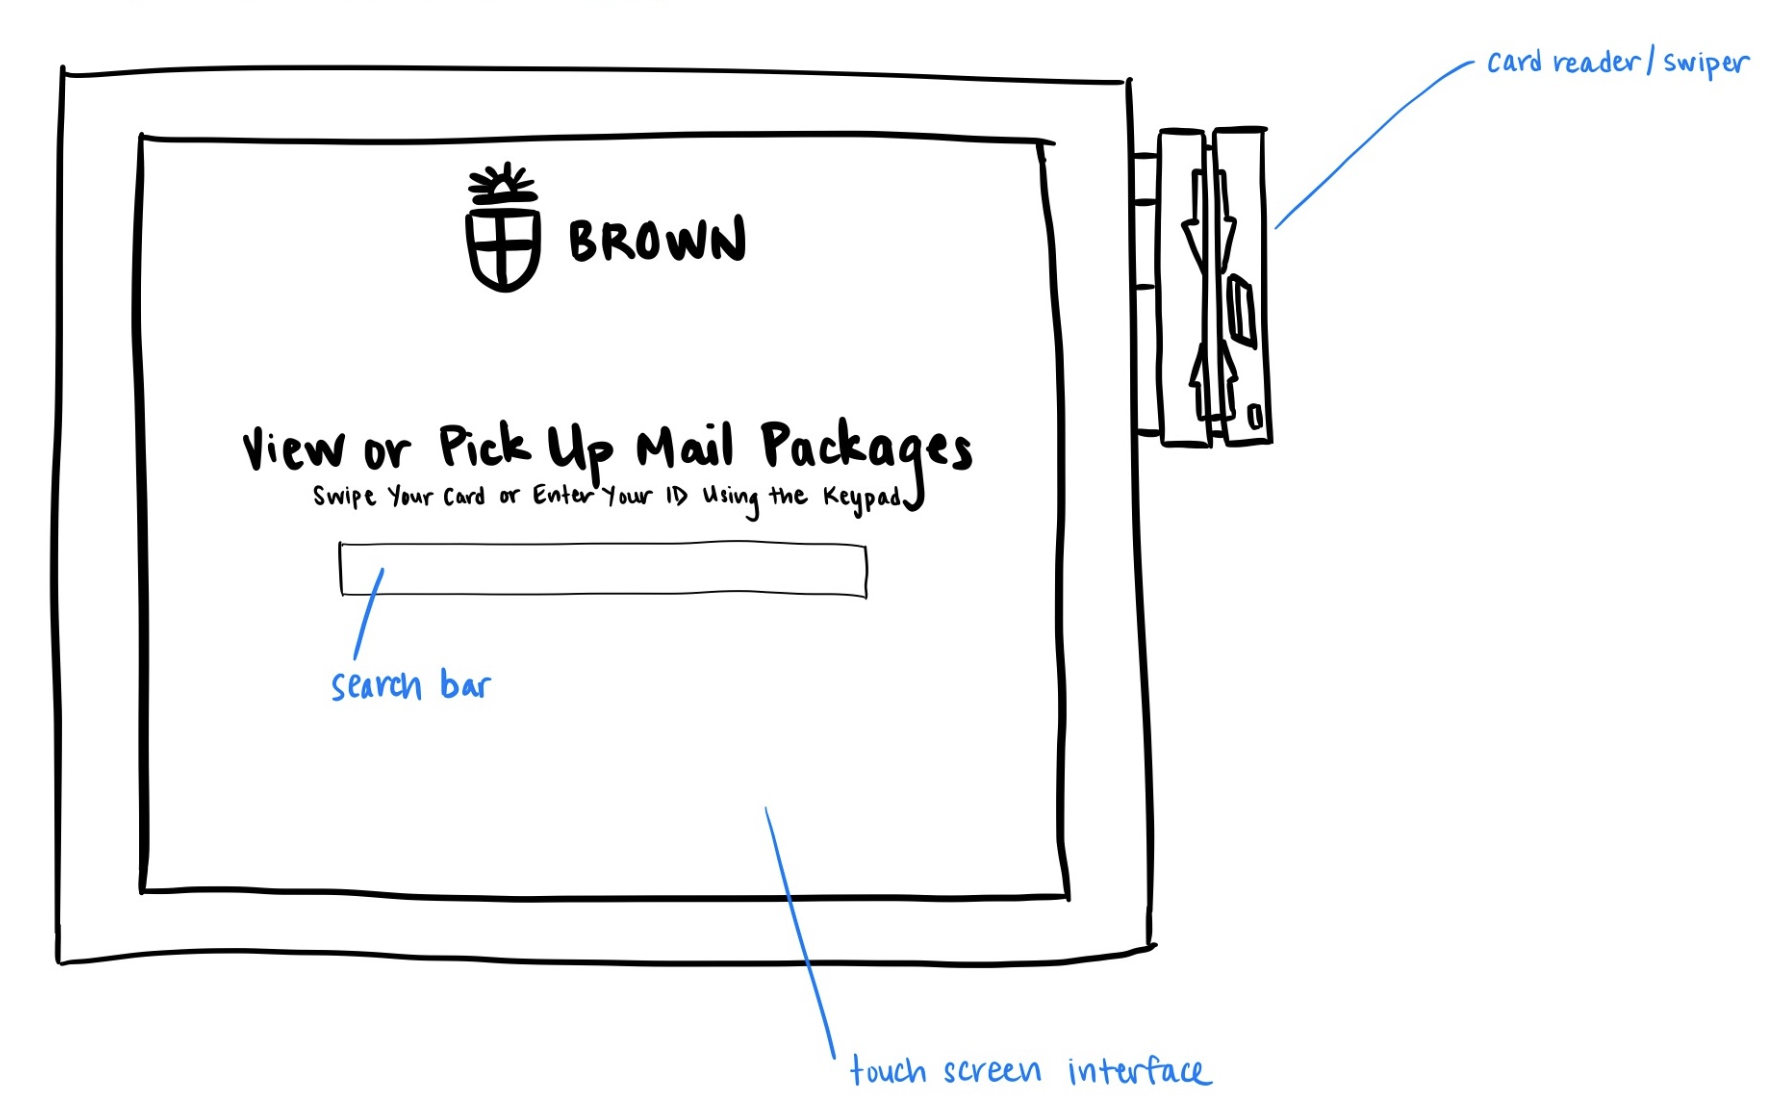 card reader/swiper
BROWN
View or Pick Up Mail Packages
Swipe Your Card or Enter Your ID Using the Keypad
search bar
touch screen interface